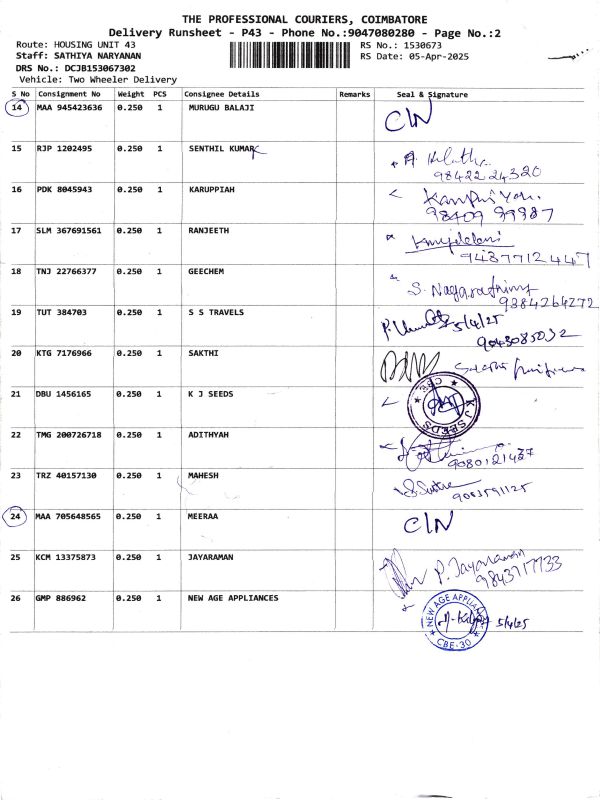 THE PROFESSIONAL COURIERS, COIMBATORE
Delivery Runsheet - P43 - Phone No.:9047080280 - Page No.:2
Route: HOUSING UNIT 43 RS No.: 1530673
Staff: SATHIYA NARYANAN RS Date: 05-Apr-2025
DRS No.: DCJB153067302
Vehicle: Two Wheeler Delivery
S No Consignment No Weight PCS Consignee Details Remarks Seal & Signature
14 MAA 945423636 0.250 1 MURUGU BALAJI C/N
15 RJP 1202495 0.250 1 SENTHIL KUMAR
98422 24320
16 PDK 8045943 0.250 1 KARUPPIAH
98409 99987
17 SLM 367691561 0.250 1 RANJEETH
18 TNJ 22766377 0.250 1 GEECHEM S. Nagarathinam
9384264272
19 TUT 384703 0.250 1 S S TRAVELS 5/4/25
9043085032
20 KTG 7176966 0.250 1 SAKTHI
21 DBU 1456165 0.250 1 K J SEEDS K J SEEDS CBE
22 TMG 200726718 0.250 1 ADITHYAH
9080121437
23 TRZ 40157130 0.250 1 MAHESH
24 MAA 705648565 0.250 1 MEERAA C/N
25 KCM 13375873 0.250 1 JAYARAMAN P. Jayaraman
9843717733
26 GMP 886962 0.250 1 NEW AGE APPLIANCES NEW AGE APPLIANCES CBE-30 5/4/25